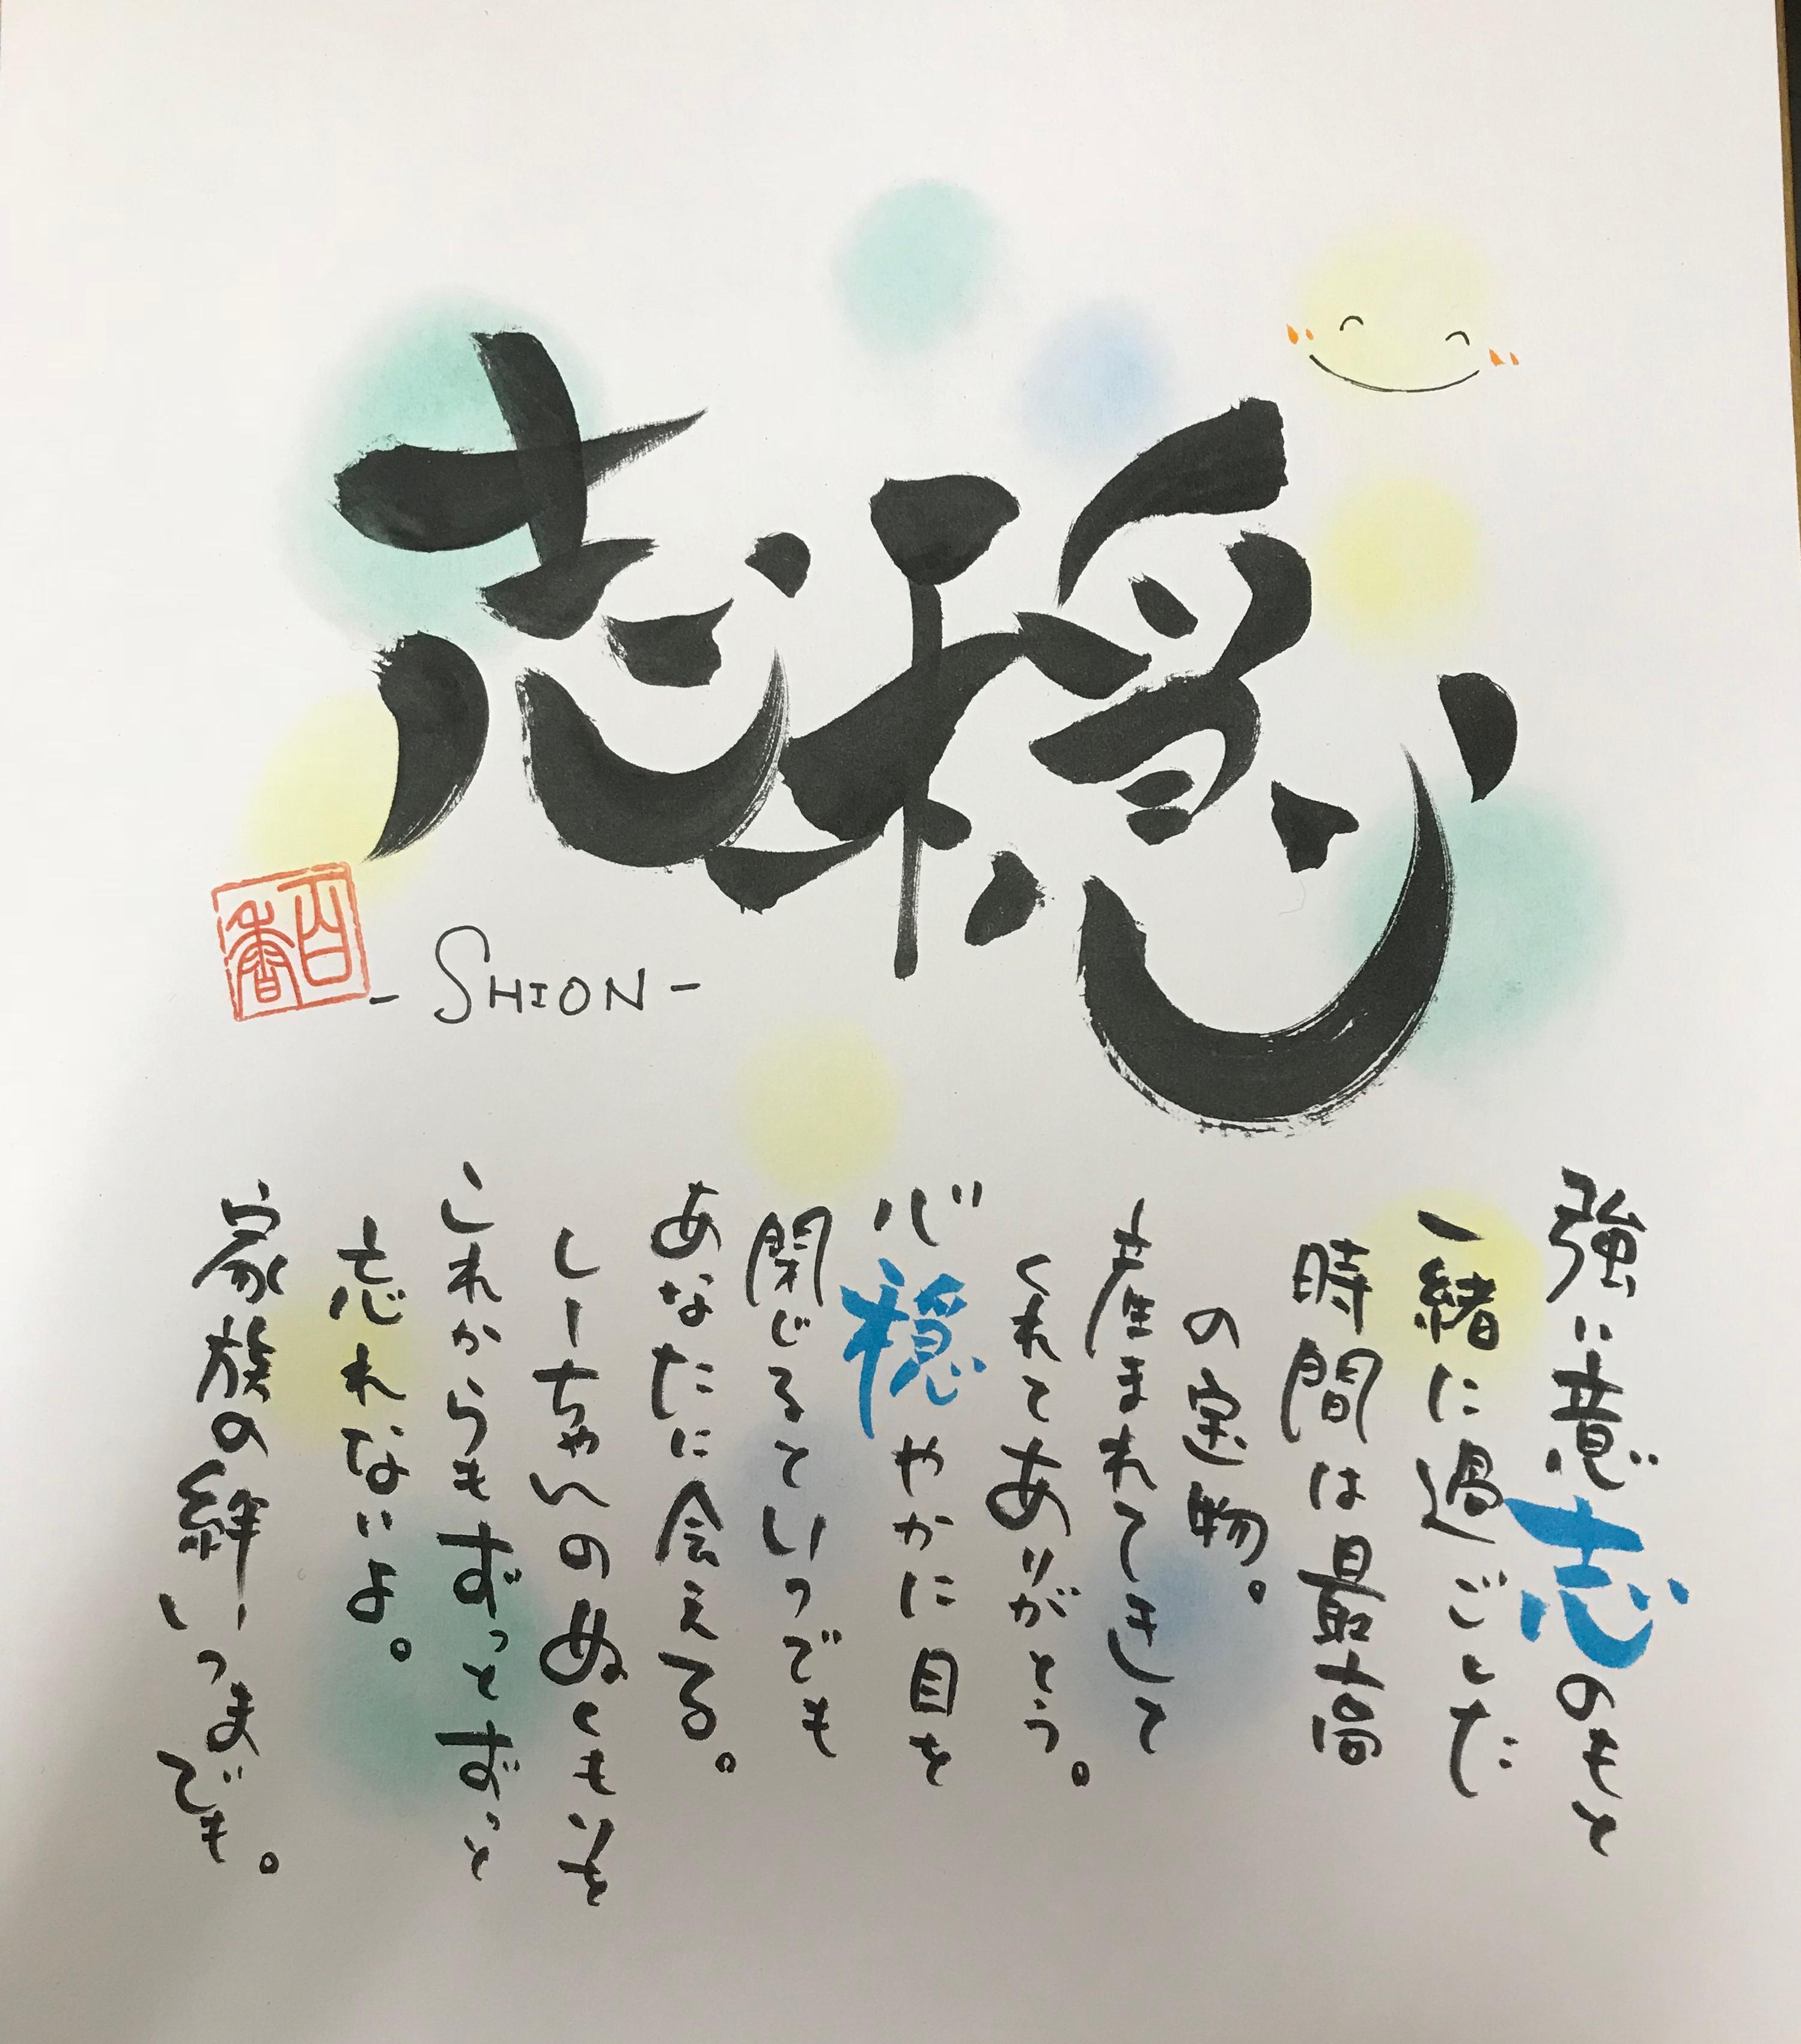 志穏
- SHION -
強い意志のもと
一緒に過ごした
時間は最高
の宝物。
産まれてきて
くれてありがとう。
心穏やかに目を
閉じるといつでも
あなたに会える。
しーちゃんのぬくもりを
これからもずっとずっと
忘れないよ。
家族の絆いつまでも。